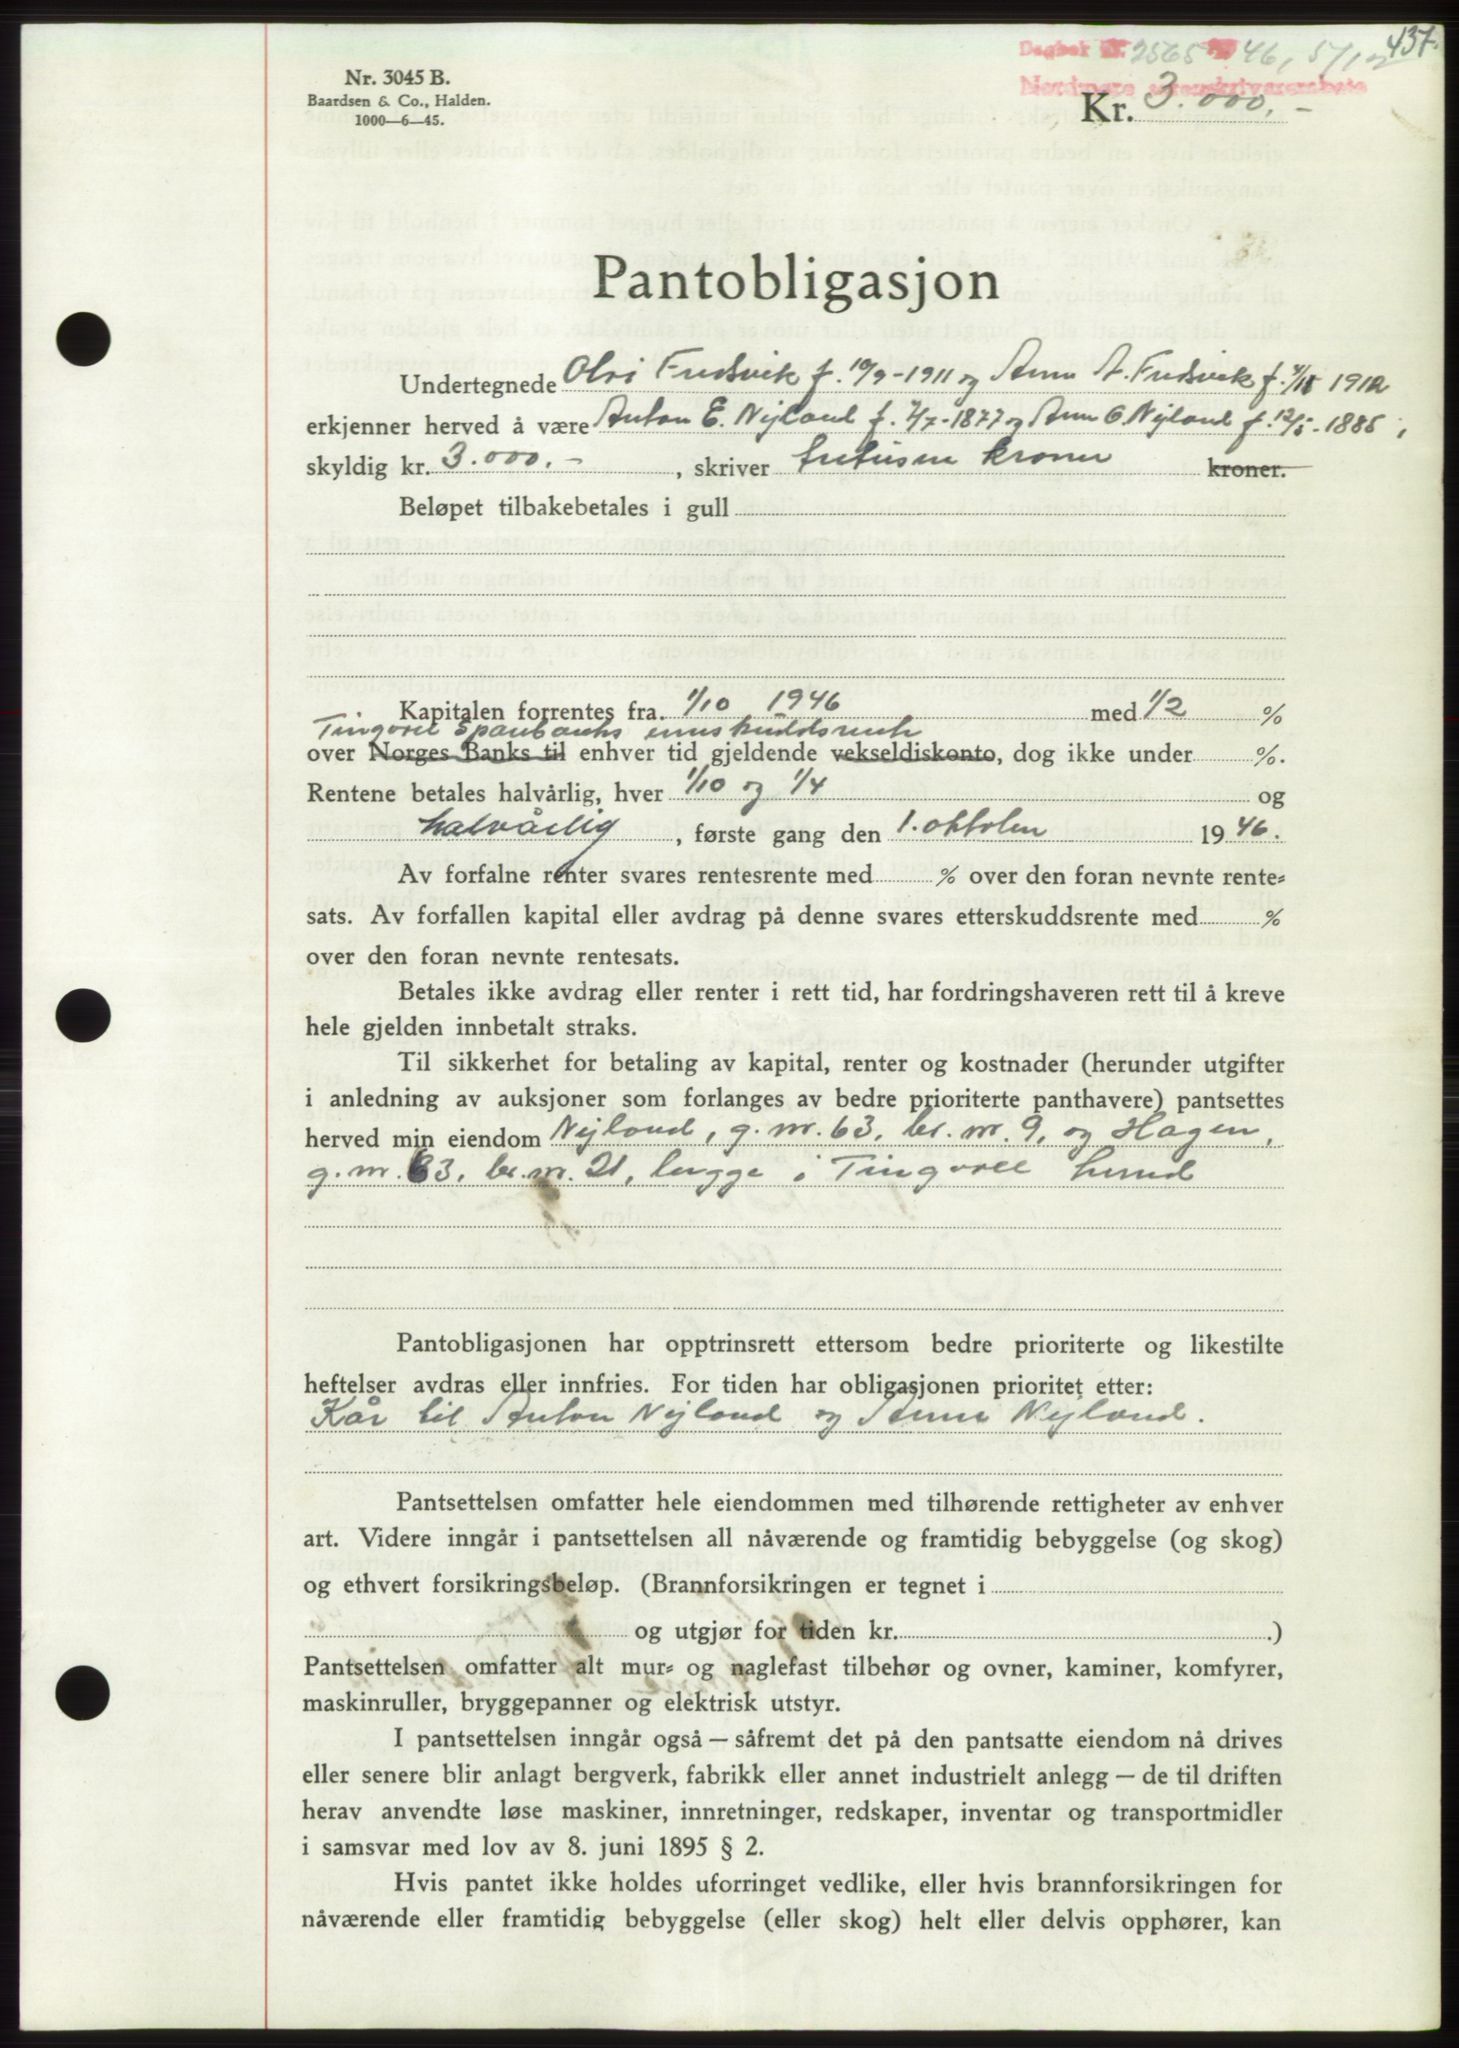 437.
Dagbok Nr. 2565 1946, 5/12
Nordmøre sorenskriverembete
Nr. 3045 B.
Baardsen & Co., Halden.
1000—6—45.
Kr. 3.000.-
Pantobligasjon
Undertegnede Olvi Fredsvik f. 10/9-1911 og Anna A. Fredsvik f. 1912
erkjenner herved å være Anton E. Nyland f. 7/7-1877 og Anna O. Nyland f. 12/5-1885,
skyldig kr. 3.000.-, skriver tretusen kroner kroner.
Beløpet tilbakebetales i gull
Kapitalen forrentes fra 1/10 1946 med 1/2 %
Tingvoll Sparebanks innskuddsrente
over Norges Banks til enhver tid gjeldende vekseldiskonto, dog ikke under %.
Rentene betales halvårlig, hver 1/10 og 1/4 og
halvårlig, første gang den 1. oktober 1946.
Av forfalne renter svares rentesrente med % over den foran nevnte rente-
sats. Av forfallen kapital eller avdrag på denne svares etterskuddsrente med %
over den foran nevnte rentesats.
Betales ikke avdrag eller renter i rett tid, har fordringshaveren rett til å kreve
hele gjelden innbetalt straks.
Til sikkerhet for betaling av kapital, renter og kostnader (herunder utgifter
i anledning av auksjoner som forlanges av bedre prioriterte panthavere) pantsettes
herved min eiendom Nyland, g.nr. 63, br.nr. 9, og Hagen,
g.nr. 63, br.nr. 21, begge i Tingvoll herred
Pantobligasjonen har opptrinsrett ettersom bedre prioriterte og likestilte
heftelser avdras eller innfries. For tiden har obligasjonen prioritet etter:
Kår til Anton Nyland og Anna Nyland.
Pantsettelsen omfatter hele eiendommen med tilhørende rettigheter av enhver
art. Videre inngår i pantsettelsen all nåværende og framtidig bebyggelse (og skog)
og ethvert forsikringsbeløp. (Brannforsikringen er tegnet i
og utgjør for tiden kr. .)
Pantsettelsen omfatter alt mur- og naglefast tilbehør og ovner, kaminer, komfyrer,
maskinruller, bryggepanner og elektrisk utstyr.
I pantsettelsen inngår også — såfremt det på den pantsatte eiendom nå drives
eller senere blir anlagt bergverk, fabrikk eller annet industrielt anlegg — de til driften
herav anvendte løse maskiner, innretninger, redskaper, inventar og transportmidler
i samsvar med lov av 8. juni 1895 § 2.
Hvis pantet ikke holdes uforringet vedlike, eller hvis brannforsikringen for
nåværende eller framtidig bebyggelse (eller skog) helt eller delvis opphører, kan